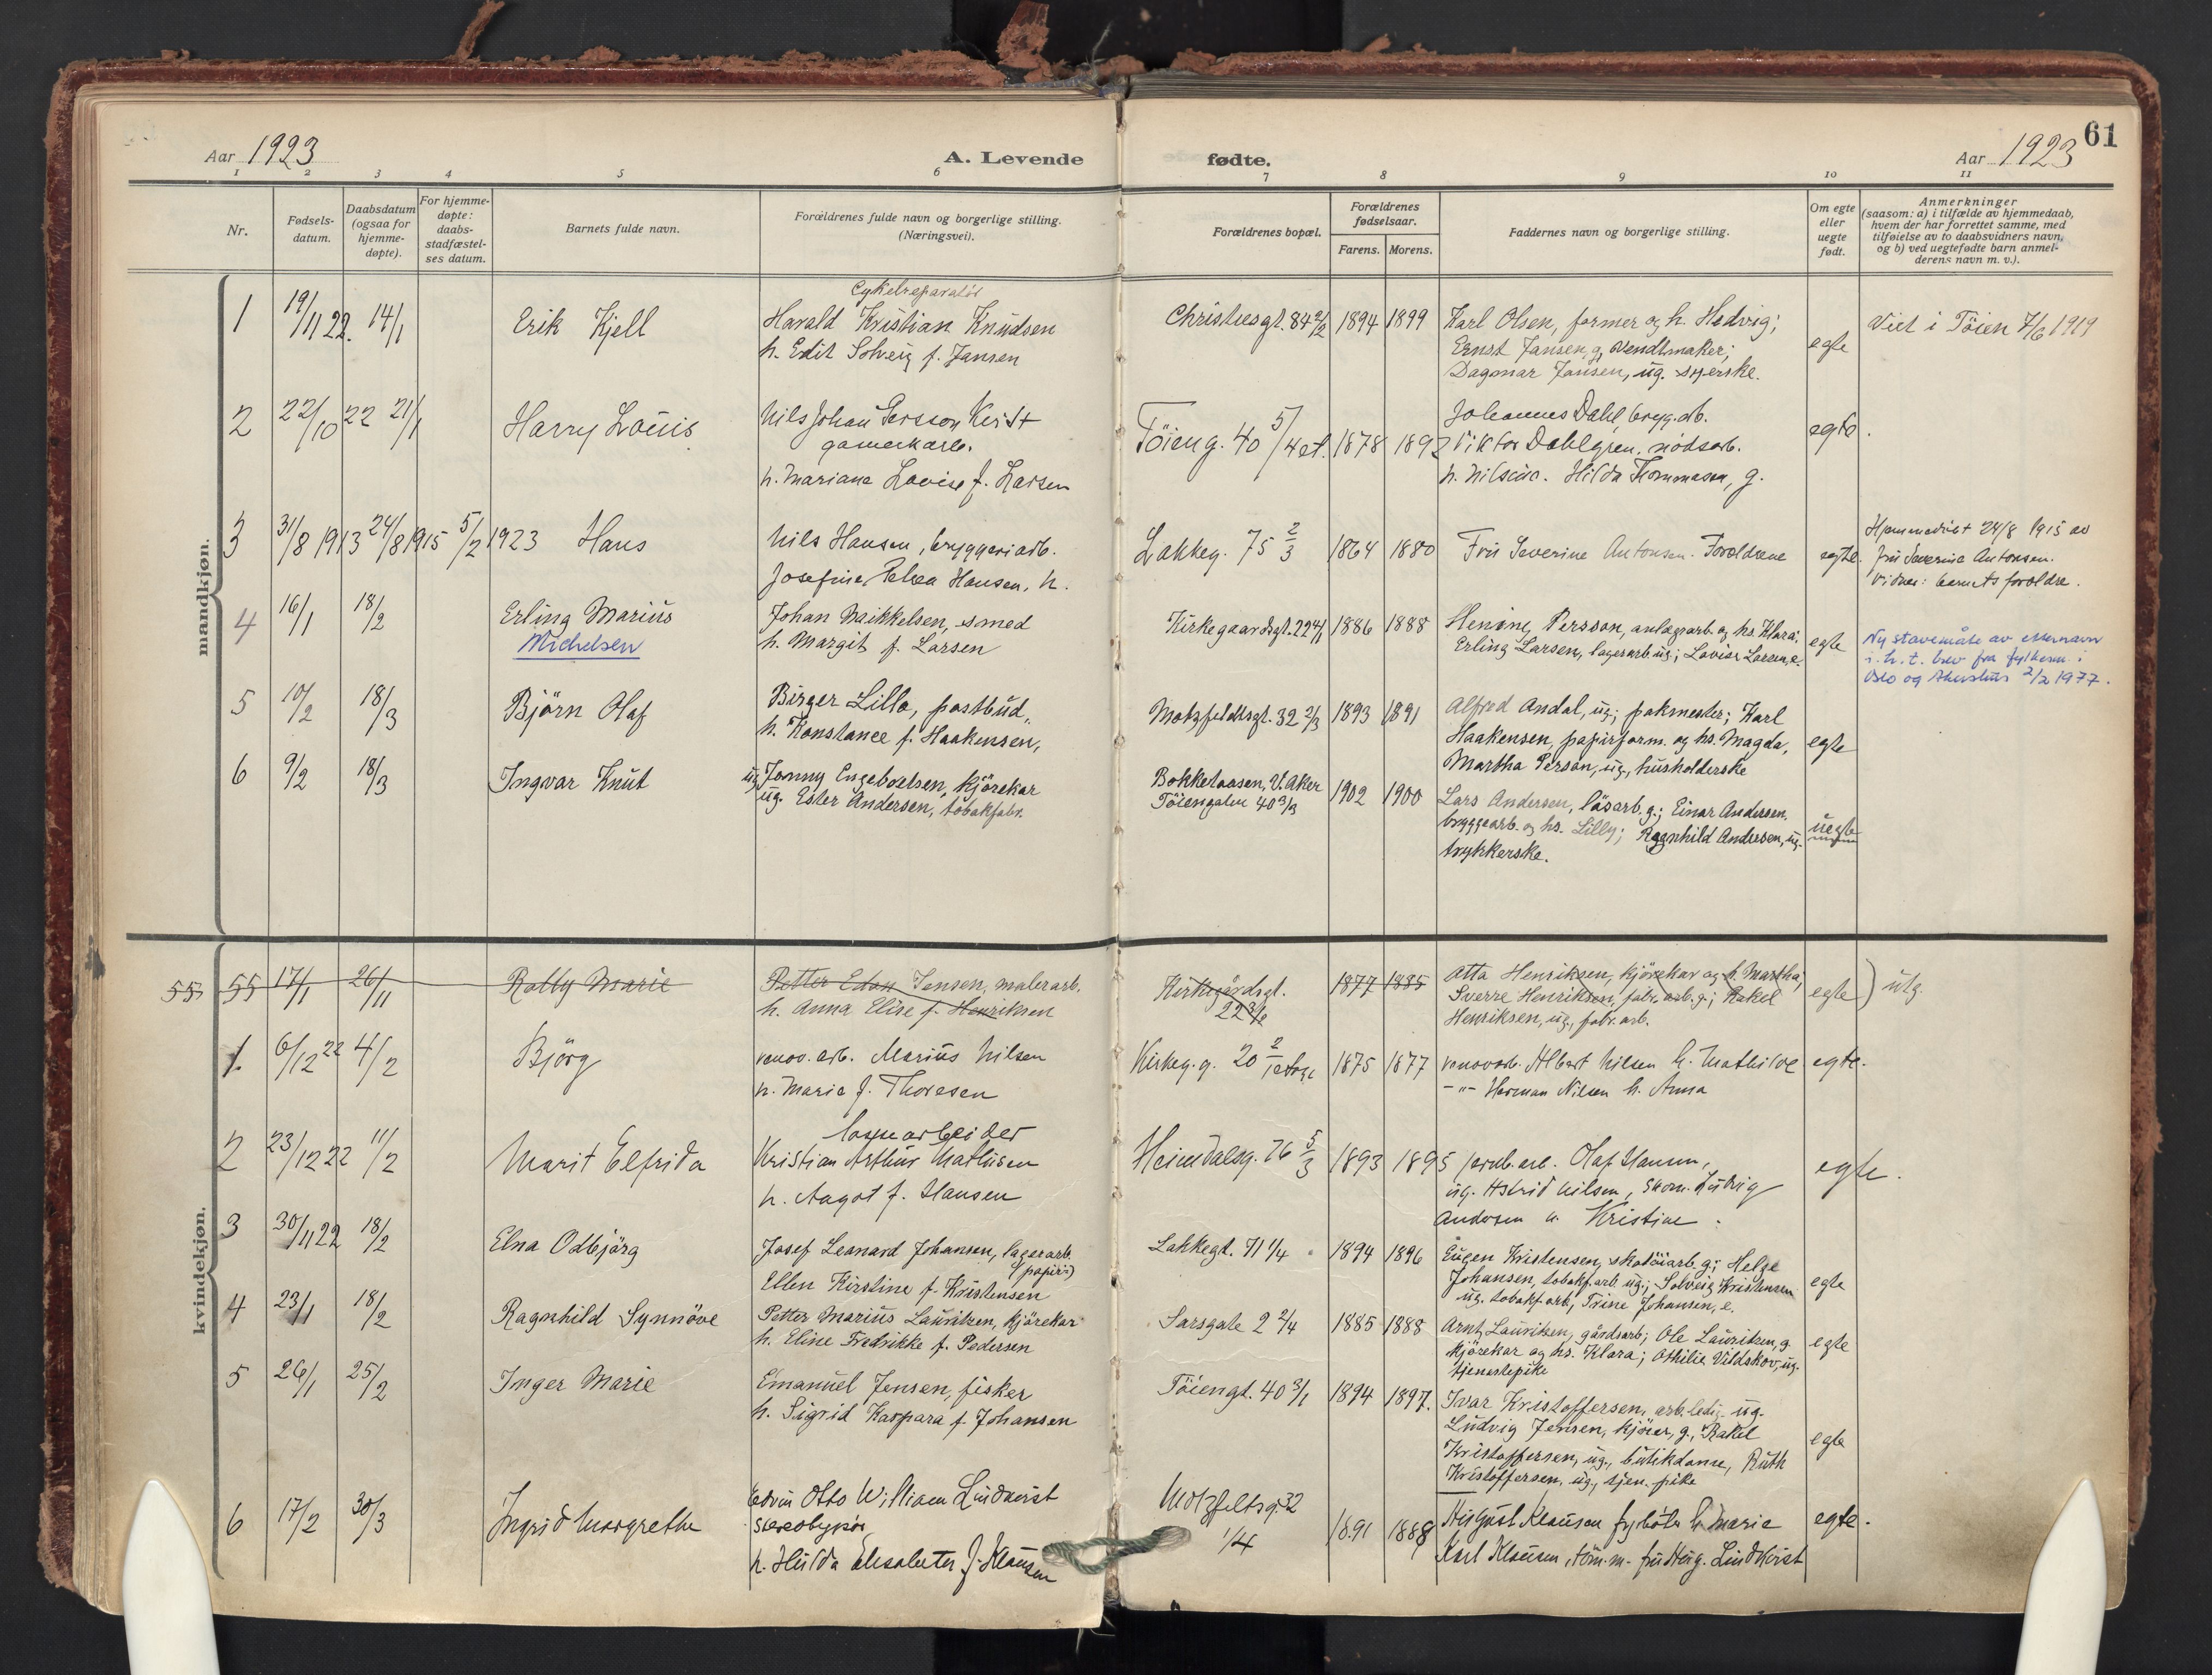 Aar 1923
A. Levende
fødte.
Aar 1923
61
1 2 3 4 5 6 7 8 9 10 11
Nr.
Fødsels-
datum.
Daabsdatum
(ogsaa for
hjemme-
døpte).
For hjemme-
døpte:
daabs-
stadfæstel-
ses datum.
Barnets fulde navn.
Forældrenes fulde navn og borgerlige stilling.
(Næringsvei).
Forældrenes bopæl.
Forældrenes
fødselsaar.
Farens. Morens.
Faddernes navn og borgerlige stilling.
Om egte
eller
uegte
født.
Anmerkninger
(saasom: a) i tilfælde av hjemmedaab,
hvem der har forrettet samme, med
tilføielse av to daabsvidners navn,
og b) ved uegtefødte barn anmel-
derens navn m. v.).
mandkjøn.
1 19/11 22. 14/1 Erik Kjell
Cykelreparatör
Harald Kristian Knudsen
h. Edit Solveig f. Jansen
Christiesgt. 84 2/2 1894 1899
Karl Olsen, former og h. Hedvig;
Ernst Jansen, g,
Dagmar Jansen, ug. syerske.
egte
Viet i Töien 7/6 1919
2 22/10 22 21/1 Harry Louis
Nils Johan Persson Kvist
h. Mariane Lovise f. Larsen
Töieng. 40 5/4 et. 1878 1892
Johannes Dahl, brygg.arb.
Viktor Dahlgren, nödsarb.
Hilda Thommasen, g.
egte.
3 31/8 1913 24/8 1915 5/2 1923 Hans
Nils Hansen, bryggeriarb.
Josefine Petrea Hansen, h.
Lakkeg. 75 2/3 1864 1880
Fru Severine Antonsen. Foreldrene
egte.
Hjemmedöbt 24/8 1915 av
fru Severine Antonsen.
Vidner: barnets foreldre.
4 16/1 18/2 Erling Marius
Michelsen
Johan Maikkelsen, smed
h. Margit f. Larsen
Kirkegaardsgt. 22 4/1 1886 1888
Henning Persson, anlægsarb. og hs. Klara;
Erling Larsen, lagerarb. ug.; Lovise Larsen, e.
egte
Ny stavemåte av etternavn
i h. t. brev fra fylkesm. i
Oslo og Akershus 2/2 1977.
5 10/2 18/3 Björn Olaf
Birger Lillo, postbud,
h. Konstance f. Haakensen,
Motzfeldtsgt. 32 2/3 1893 1891
Alfred Andal, ug; pakmester; Karl
Haakensen, papirform. og hs. Magda,
Martha Person, ug., husholderske
egte
6 9/2 18/3 Ingvar Knut
ug. Jonny Engebretsen, kjörekar
ug. Ester Andersen, tobakfabr.
Bokketaasen, V. Aker
Töiengaten 40 3/3 1902 1900
Lars Andersen, läsarb. g.; Einar Andersen,
bryggearb. og hs. Lilly; Ragnhild Andersen, ug.
trykkerske.
uegte
kvindekjøn.
55 55 17/1 26/11 Rolly Marie
Petter Edon Jensen, malerarb.
h. Anna Elise f. Henriksen
Kirkegårdsgt.
22 3/2 1877 1885
Otto Henriksen, kjörekar og h. Martha;
Sverre Henriksen, fabr. arb. g.; Rakel
Henriksen, ug, fabr. arb.
egte) utg.
1. 6/12 22 4/2 Björg
renov. arb. Marius Nilsen
h. Marie f. Thoresen
Kirkeg. g. 20 2/1 etage 1875 1877
renovarb. Albert Nilsen h. Mathilde
-"- Herman Nilsen h. Anna
egte.
2 23/12 22 11/2 Marit Elfrida
Kristian Arthur Mathisen
h. Aagot f. Hansen
Heimdalsg. 76 5/3 1893 1895
jernb. arb. Olaf Hansen,
ug. Astrid Nilsen, skom. Ludvig
Andersen h. Kristine.
egte.
3 30/11 22 18/2 Elna Odbjörg
Josef Leonard Johansen, lagerarb.
(papir)
Ellen Kirstine f. Kristensen
Lakkegt. 71 1/4 1894 1896
Eugen Kristensen, skotöiarb. g; Helge
Johansen, tobakf. arb. ug.; Solveig Kristensen
ug. tobakf. arb, Trine Johansen, e.
egte
4 23/1 18/2 Ragnhild Synnöve
Petter Marius Lauritzen, kjörekar
h. Eline Fredrikke f. Pedersen
Sarsgate 2 2/4 1885 1888
Arnt Lauritsen, gårdsarb; Ole Lauritsen, g.
kjörekar og hs. Klara; Othilie Vildskov, ug.
tjenestepike
egte
5 26/1 25/2 Inger Marie
Emanuel Jensen, fisker
h. Sigrid Kaspara f. Johansen
Töiengt. 40 3/1 1894 1897.
Ivar Kristoffersen, arb. ledig ug.
Ludvig Jensen, kjörer, g., Rakel
Kristoffersen, ug., butikdame, Ruth
Kristoffersen, ug., tjen. pike
egte
6 17/2 30/3 Ingrid Margrethe
Edvin Otto William Lindkvist
h. Hilda Elisabeter f. Klausen
Motzfeltsg. 32
1/4 1891 1888
August Klausen fyrböter h. Marie
Karl Klausen, töm. m. fru Aug. Lindkvist
egte.